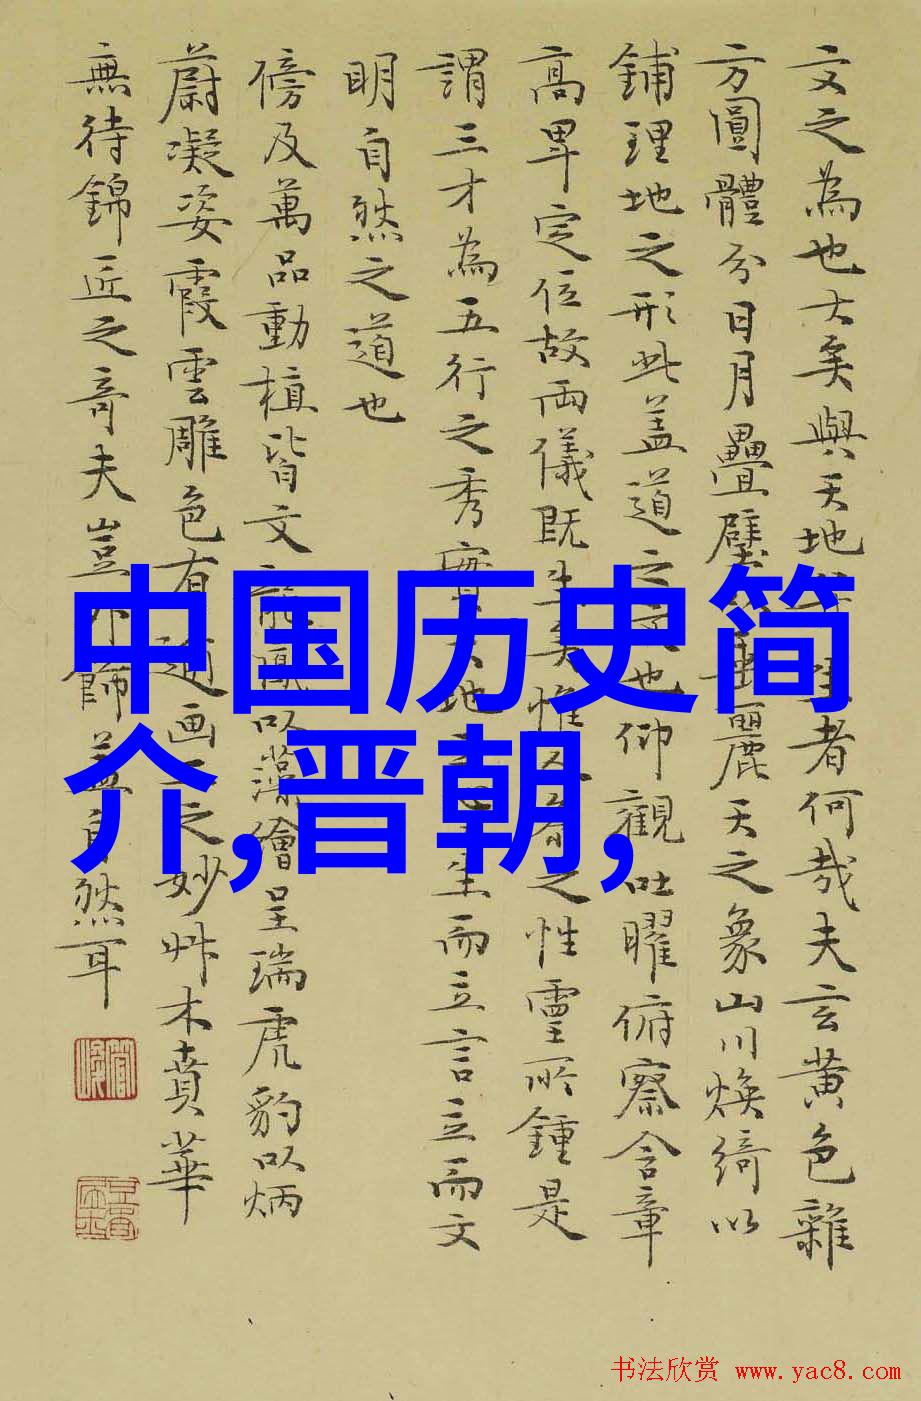 文之為也大矣與天地生者何哉夫玄黄色雜
方圓體分日月疊璧以垂麗天之象山川煥綺以
鋪理地之形此盖道之文也仰觀吐曜俯察含章
高卑定位故兩儀既生矣惟人參之性靈所鍾是
謂三才為五行之秀實天地之心生而立言立而文
明自然之道也
傍及萬品動植皆文龍鳳以藻繪呈瑞虎豹以炳
蔚凝姿霞雲雕色有逾画工之妙艸木賁華
無待錦匠之奇夫豈外飾盖自然耳
中国历史简
介,晋朝,
书法欣赏 www.yac8.com